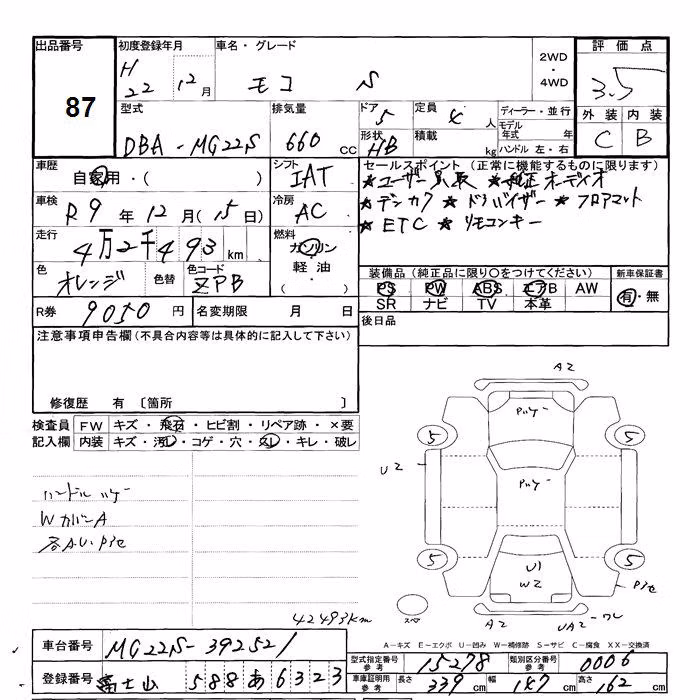 出品番号 初度登録年月 車名・グレード 2WD・4WD 評価点
87 H 22 12月 モコ S 3.5
型式 排気量 ドア 定員 ディーラー・並行 外装 内装
DBA-MG22S 660 cc 5 4 人 モデル年式 年 C B
形状 HB 積載 kg ハンドル 左・右
車歴 自家用・( ) シフト IAT セールスポイント (正常に機能するものに限ります)
車検 R9年12月(15日) 冷房 AC ★ユーザー買取 ★純正オーディオ
★デンカク ★ドアバイザー ★フロアマット
走行 4万2千493km 燃料 ガソリン・軽油・( ) ★ETC ★リモコンキー
色 オレンジ 色替 色コード ZPB
装備品 (純正品に限り○をつけてください) 新車保証書
PS PW ABS エアB AW 有・無
SR ナビ TV 本革
R券 9050円 名変期限 月 日
後日品
注意事項申告欄 (不具合内容等は具体的に記入して下さい)
修復歴 有 〔箇所 〕
検査員記入欄 FW キズ・飛石・ヒビ割・リペア跡・×要
内装 キズ・汚レ・コゲ・穴・スレ・キレ・破レ
A2
ハゲー
5 5
U2
ハゲー
ハンドルハゲー
WカバーA
各A.U.Pキセ
5 5
U1
W2
Pキセ
スペア
A2 UA2-ワレ
42493km
A-キズ E-エクボ U-凹み W-補修跡 S-サビ C-腐食 XX-交換済
車台番号 MG22S-392521
型式指定番号 参考 15278 類別区分番号 参考 0006
登録番号 富士山 588 あ 6323
車庫証明用 参考 長さ 339cm 幅 147cm 高さ 162cm